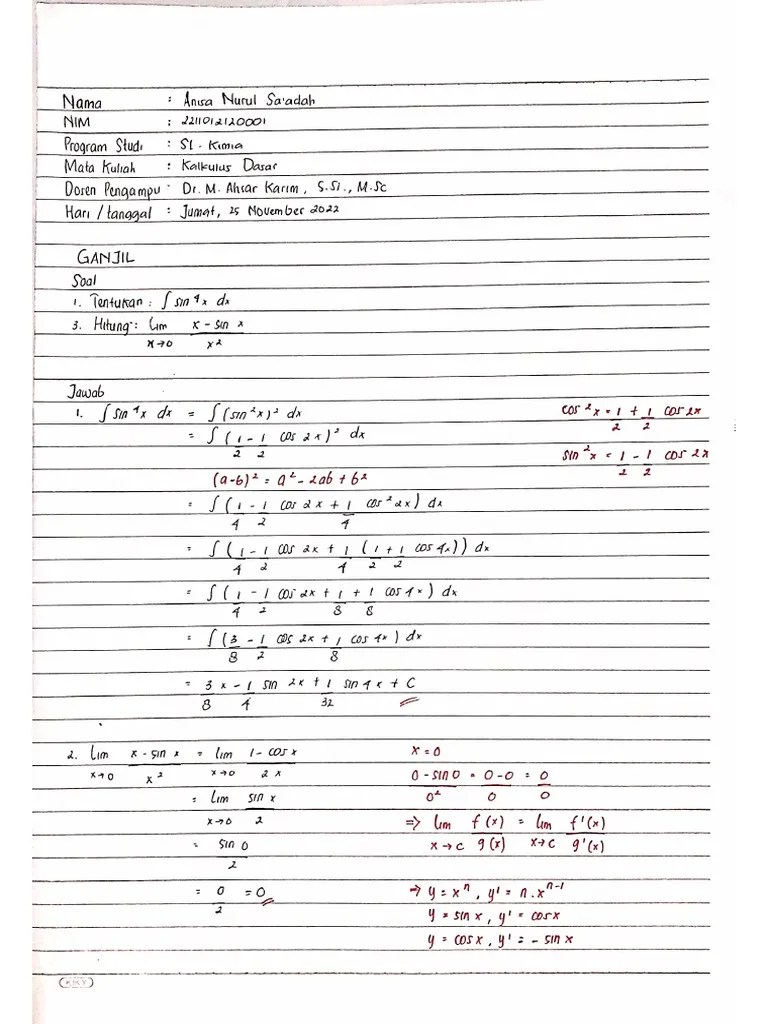 Nama : Anisa Nurul Sa'adah
NIM : 2211012120001
Program Studi : S1 - Kimia
Mata Kuliah : Kalkulus Dasar
Dosen Pengampu : Dr. M. Ahsar Karim, S.Si., M.Sc
Hari / tanggal : Jumat, 25 November 2022
GANJIL
Soal
1. Tentukan : ∫ sin⁴x dx
3. Hitung : lim x→0 (x - sin x)/x²
Jawab
1. ∫ sin⁴x dx = ∫ (sin²x)² dx
cos²x = 1/2 + 1/2 cos 2x
= ∫ (1/2 - 1/2 cos 2x)² dx
sin²x = 1/2 - 1/2 cos 2x
(a-b)² = a² - 2ab + b²
= ∫ (1/4 - 1/2 cos 2x + 1/4 cos²2x) dx
= ∫ (1/4 - 1/2 cos 2x + 1/4 (1/2 + 1/2 cos 4x)) dx
= ∫ (1/4 - 1/2 cos 2x + 1/8 + 1/8 cos 4x) dx
= ∫ (3/8 - 1/2 cos 2x + 1/8 cos 4x) dx
= 3/8 x - 1/4 sin 2x + 1/32 sin 4x + C
2. lim x→0 (x - sin x)/x² = lim x→0 (1 - cos x)/2x
x = 0
(0 - sin 0)/0² = (0 - 0)/0 = 0/0
= lim x→0 sin x/2
⇒ lim x→c f(x)/g(x) = lim x→c f'(x)/g'(x)
= sin 0/2
= 0/2 = 0
→ y = xⁿ, y' = n.xⁿ⁻¹
y = sin x, y' = cos x
y = cos x, y' = - sin x
KKY